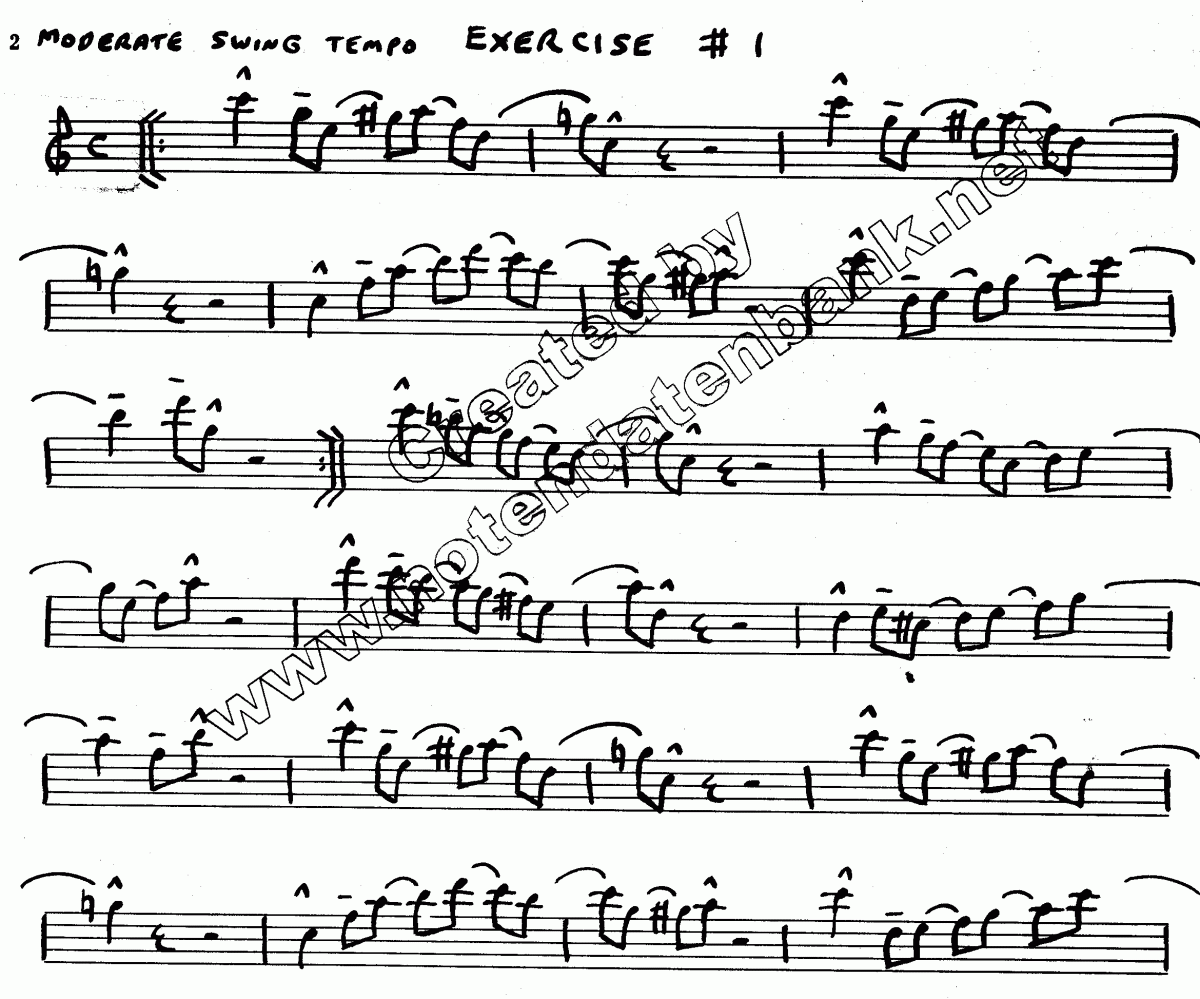 2 MODERATE SWING TEMPO EXERCISE # 1
Created by
www.notendatenbank.net